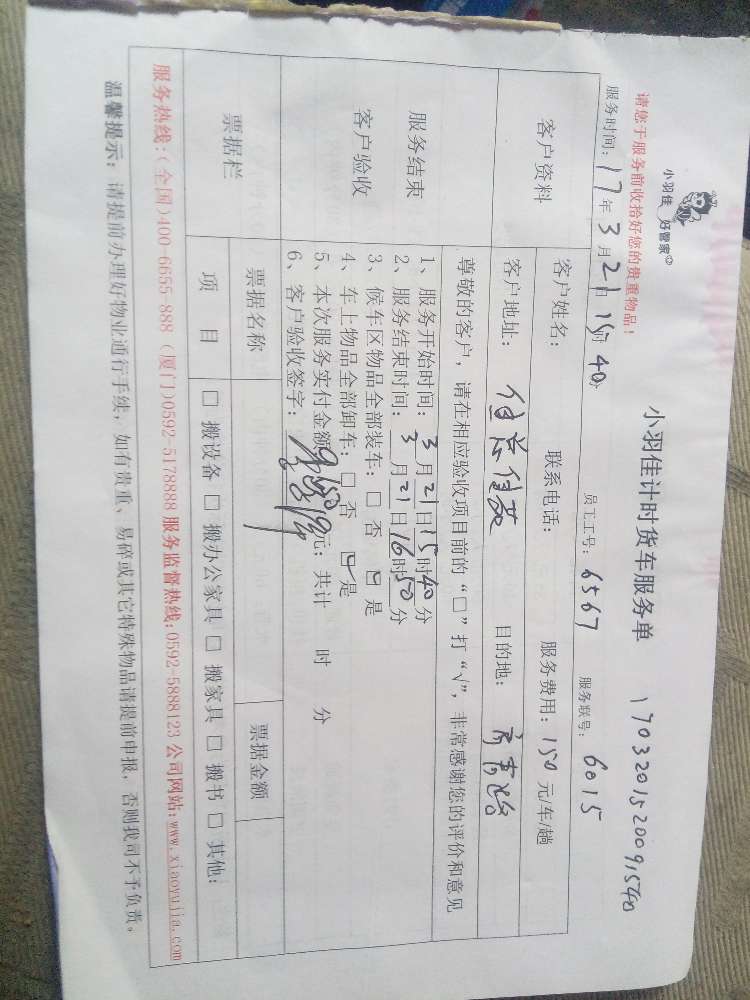 小羽佳 好管家
小羽佳计时货车服务单 170320152009,1540
请您于服务前收拾好您的贵重物品！
服务时间：17年3月21日15时40分 员工工号：6567 服务联号：6015
客户资料
客户姓名： 联系电话： 服务费用：150元/车/趟
客户地址： 目的地：
尊敬的客户，请在相应验收项目前的“□”打“√”，非常感谢您的评价和意见
服务结束
客户验收
1、服务开始时间：3月21日15时40分
2、服务结束时间：3月21日16时50分
3、候车区物品全部装车：□ 否 □ 是
4、车上物品全部卸车：□ 否 □ 是
5、本次服务实付金额150元；共计 时 分
6、客户验收签字：
票据栏
票据名称 票据金额
项 目 □ 搬设备 □ 搬办公家具 □ 搬家具 □ 搬书 □ 其他：
服务热线：（全国）400-6655-888（厦门）0592-5178888 服务监督热线：0592-5888123 公司网站：www.xiaoyujia.com
温馨提示：请提前办理好物业通行手续，如有贵重、易碎或其它特殊物品请提前申报，否则我司不予负责。